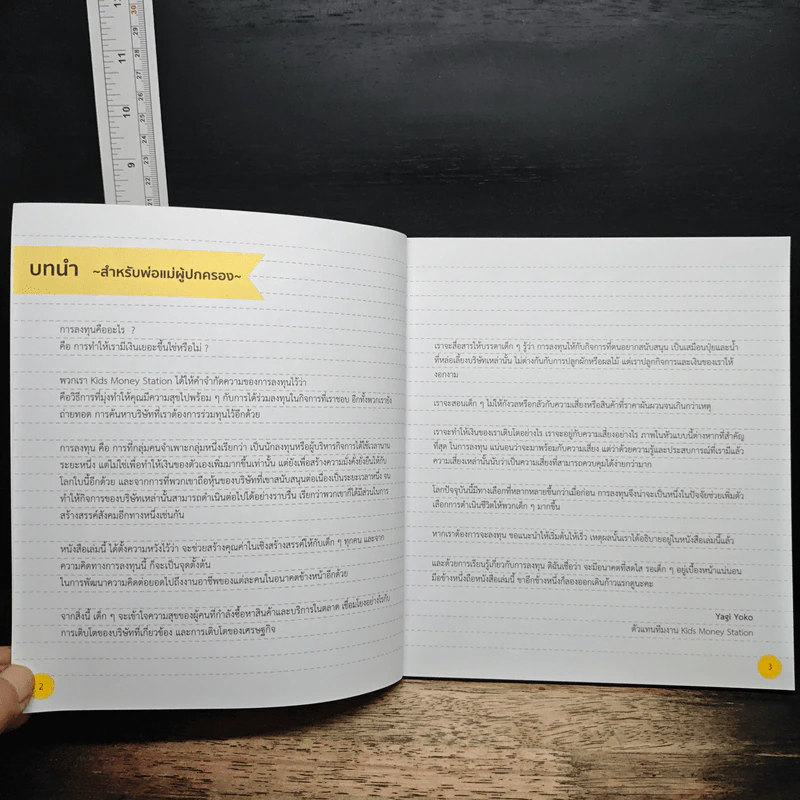 13
30
12
29
28
11
27
26
10
25
24
23
9
22
21
บทนำ ~สำหรับพ่อแม่ผู้ปกครอง~
การลงทุนคืออะไร ?
คือ การทำให้เรามีเงินเยอะขึ้นใช่หรือไม่ ?
พวกเรา Kids Money Station ได้ให้คำจำกัดความของการลงทุนไว้ว่า
คือวิธีการที่มุ่งทำให้คุณมีความสุขไปพร้อม ๆ กับการได้ร่วมลงทุนในกิจการที่เราชอบ อีกทั้งพวกเรายัง
ถ่ายทอด การค้นหาบริษัทที่เราต้องการร่วมทุนไว้อีกด้วย
การลงทุน คือ การที่กลุ่มคนจำเพาะกลุ่มหนึ่งเรียกว่า เป็นนักลงทุนหรือผู้บริหารกิจการได้ใช้เวลานาน
ระยะหนึ่ง แต่ไม่ใช่เพื่อทำให้เงินของตัวเองเพิ่มมากขึ้นเท่านั้น แต่ยังเพื่อสร้างความมั่งคั่งยั่งยืนให้กับ
โลกใบนี้อีกด้วย และจากการที่พวกเขาถือหุ้นของบริษัทที่เขาสนับสนุนต่อเนื่องเป็นระยะเวลาหนึ่ง จน
ทำให้กิจการของบริษัทเหล่านั้นสามารถดำเนินต่อไปได้อย่างราบรื่น เรียกว่าพวกเขาก็ได้มีส่วนในการ
สร้างสรรค์สังคมอีกทางหนึ่งเช่นกัน
หนังสือเล่มนี้ ได้ตั้งความหวังไว้ว่า จะช่วยสร้างคุณค่าในเชิงสร้างสรรค์ให้กับเด็ก ๆ ทุกคน และจาก
ความคิดทางการลงทุนนี้ ก็จะเป็นจุดตั้งต้น
ในการพัฒนาความคิดต่อยอดไปถึงงานอาชีพของแต่ละคนในอนาคตข้างหน้าอีกด้วย
จากสิ่งนี้ เด็ก ๆ จะเข้าใจความสุขของผู้คนที่กำลังซื้อหาสินค้าและบริการในตลาด เชื่อมโยงอย่างไรกับ
การเติบโตของบริษัทที่เกี่ยวข้อง และการเติบโตของเศรษฐกิจ
2
เราจะสื่อสารให้บรรดาเด็ก ๆ รู้ว่า การลงทุนให้กับกิจการที่ตนอยากสนับสนุน เป็นเสมือนปุ๋ยและน้ำ
ที่หล่อเลี้ยงบริษัทเหล่านั้น ไม่ต่างกันกับการปลูกผักหรือผลไม้ แต่เราปลูกกิจการและเงินของเราให้
งอกงาม
เราจะสอนเด็ก ๆ ไม่ให้กังวลหรือกลัวกับความเสี่ยงหรือสินค้าที่ราคาผันผวนจนเกินกว่าเหตุ
เราจะทำให้เงินของเราเติบโตอย่างไร เราจะอยู่กับความเสี่ยงอย่างไร ภาพในหัวแบบนี้ต่างหากที่สำคัญ
ที่สุด ในการลงทุน แน่นอนว่าจะมาพร้อมกับความเสี่ยง แต่ว่าด้วยความรู้และประสบการณ์ที่เรามีแล้ว
ความเสี่ยงเหล่านั้นนับว่าเป็นความเสี่ยงที่สามารถควบคุมได้ง่ายกว่ามาก
โลกปัจจุบันนี้มีทางเลือกที่หลากหลายขึ้นกว่าเมื่อก่อน การลงทุนจึงน่าจะเป็นหนึ่งในปัจจัยช่วยเพิ่มตัว
เลือกการดำเนินชีวิตให้พวกเด็ก ๆ มากขึ้น
หากเราต้องการจะลงทุน ขอแนะนำให้เริ่มต้นให้เร็ว เหตุผลนั้นเราได้อธิบายอยู่ในหนังสือเล่มนี้แล้ว
และด้วยการเรียนรู้เกี่ยวกับการลงทุน ดิฉันเชื่อว่า จะมีอนาคตที่สดใส รอเด็ก ๆ อยู่เบื้องหน้าแน่นอน
มือข้างหนึ่งถือหนังสือเล่มนี้ ขาอีกข้างหนึ่งก็ลองออกเดินก้าวแรกดูนะคะ
Yagi Yoko
ตัวแทนทีมงาน Kids Money Station
3